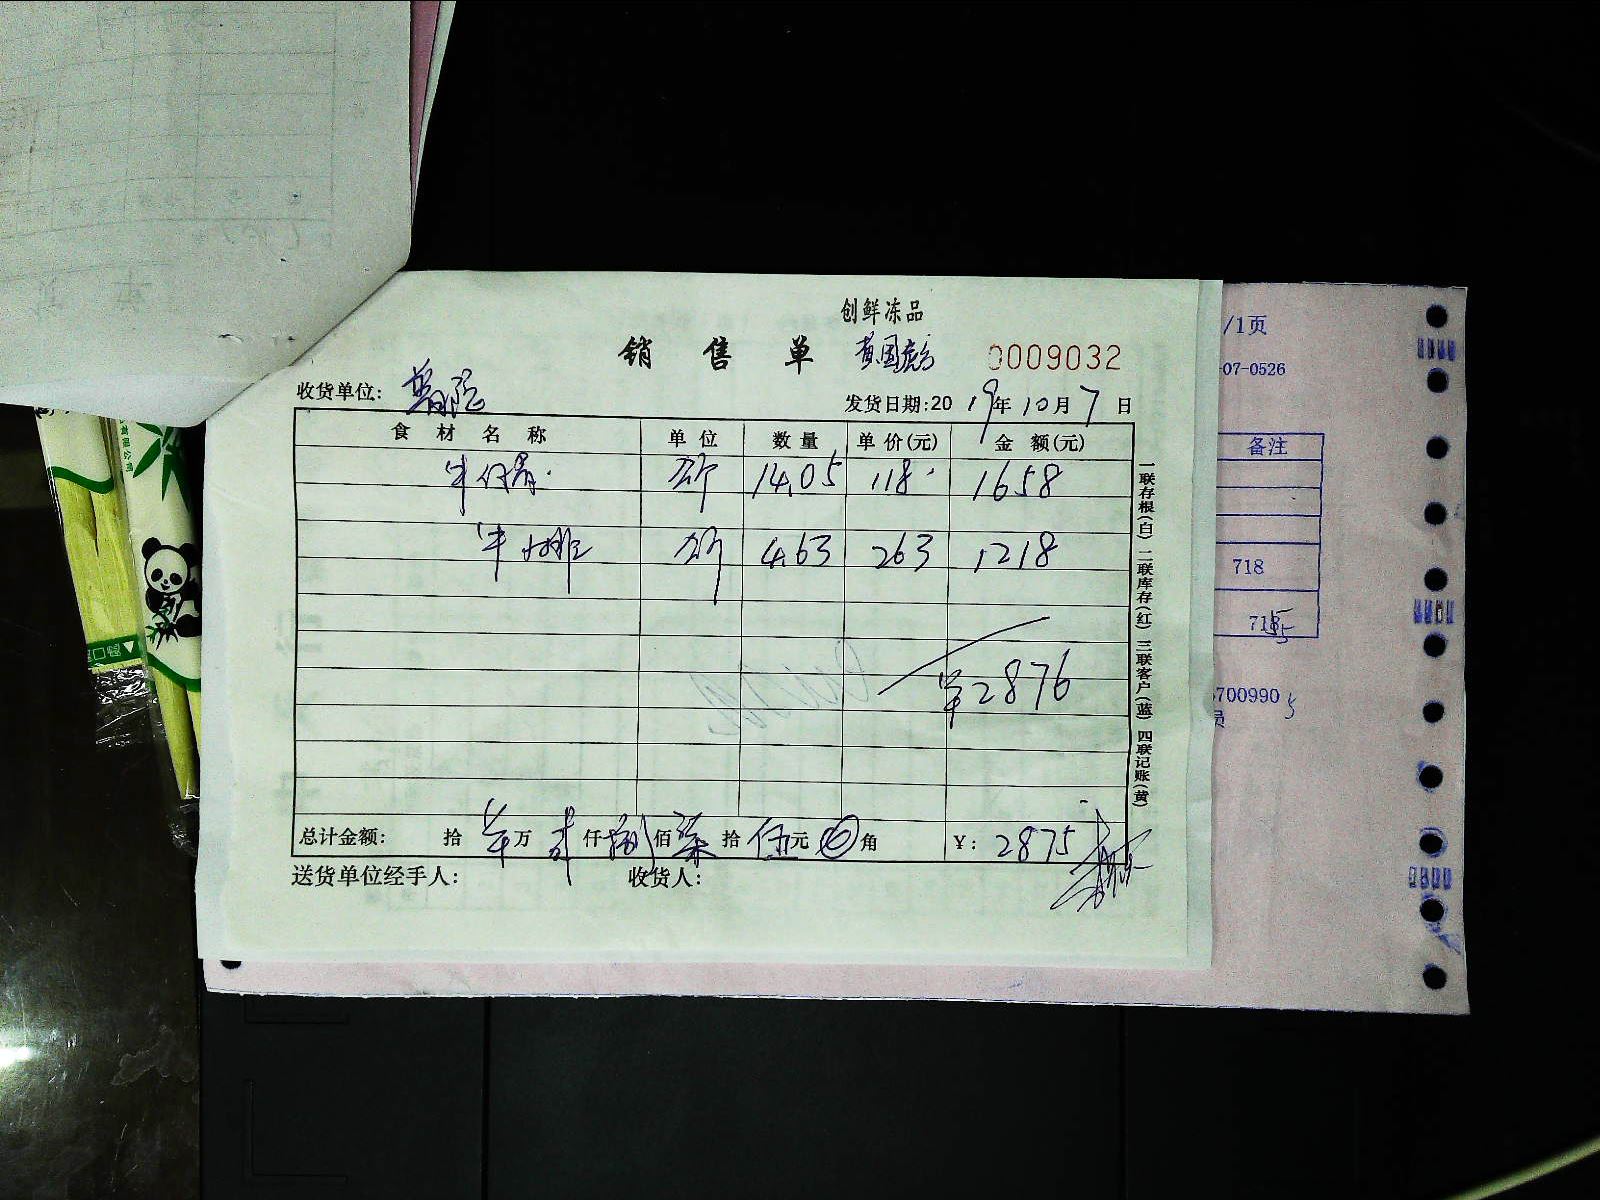 创鲜冻品
销售单
0009032
收货单位:
发货日期:2019年10月7日
食材名称 单位 数量 单价(元) 金额(元)
公斤 14.05 118 1658
牛小排 公斤 4.63 263 1218
¥2876
总计金额: 拾 万 仟 捌佰柒拾伍元 角 ¥: 2875
送货单位经手人: 收货人:
一联存根(白) 二联库存(红) 三联客户(蓝) 四联记账(黄)
/1页
-07-0526
备注
718
700990
员